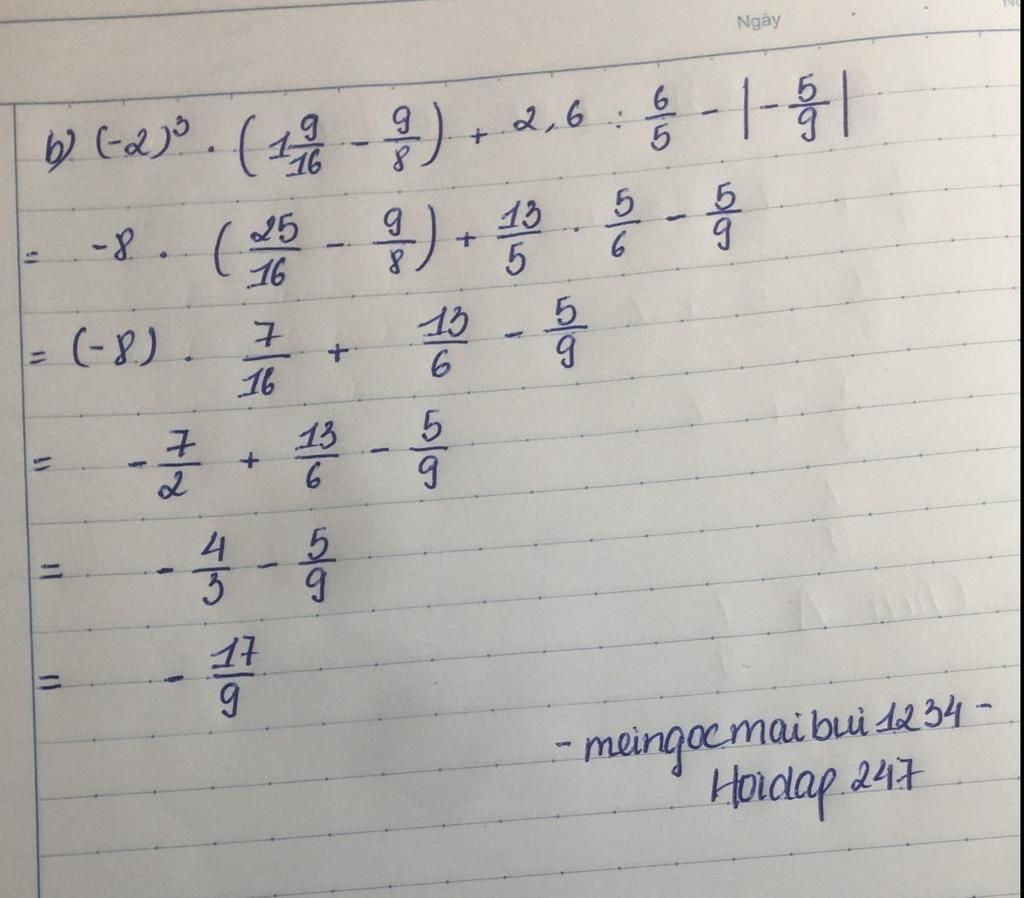 Ngày
b) (-2)³ . (1 9/16 - 9/8) + 2,6 : 6/5 - |-5/9|
= -8 . (25/16 - 9/8) + 13/5 . 5/6 - 5/9
= (-8) . 7/16 + 13/6 - 5/9
= -7/2 + 13/6 - 5/9
= -4/3 - 5/9
= -17/9
- meingocmaibui1234 -
Hoidap 247